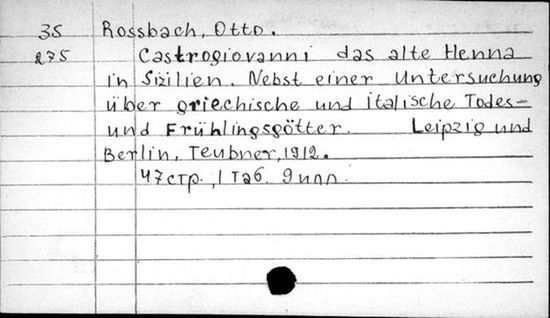 35 Rossbach, Otto.
275 Castrogiovanni das alte Henna
in Sizilien. Nebst einer Untersuchung
über griechische und italische Todes-
und Frühlingsgötter. Leipzig und
Berlin, Teubner, 1912.
47 стр., 1 таб. 9 илл.